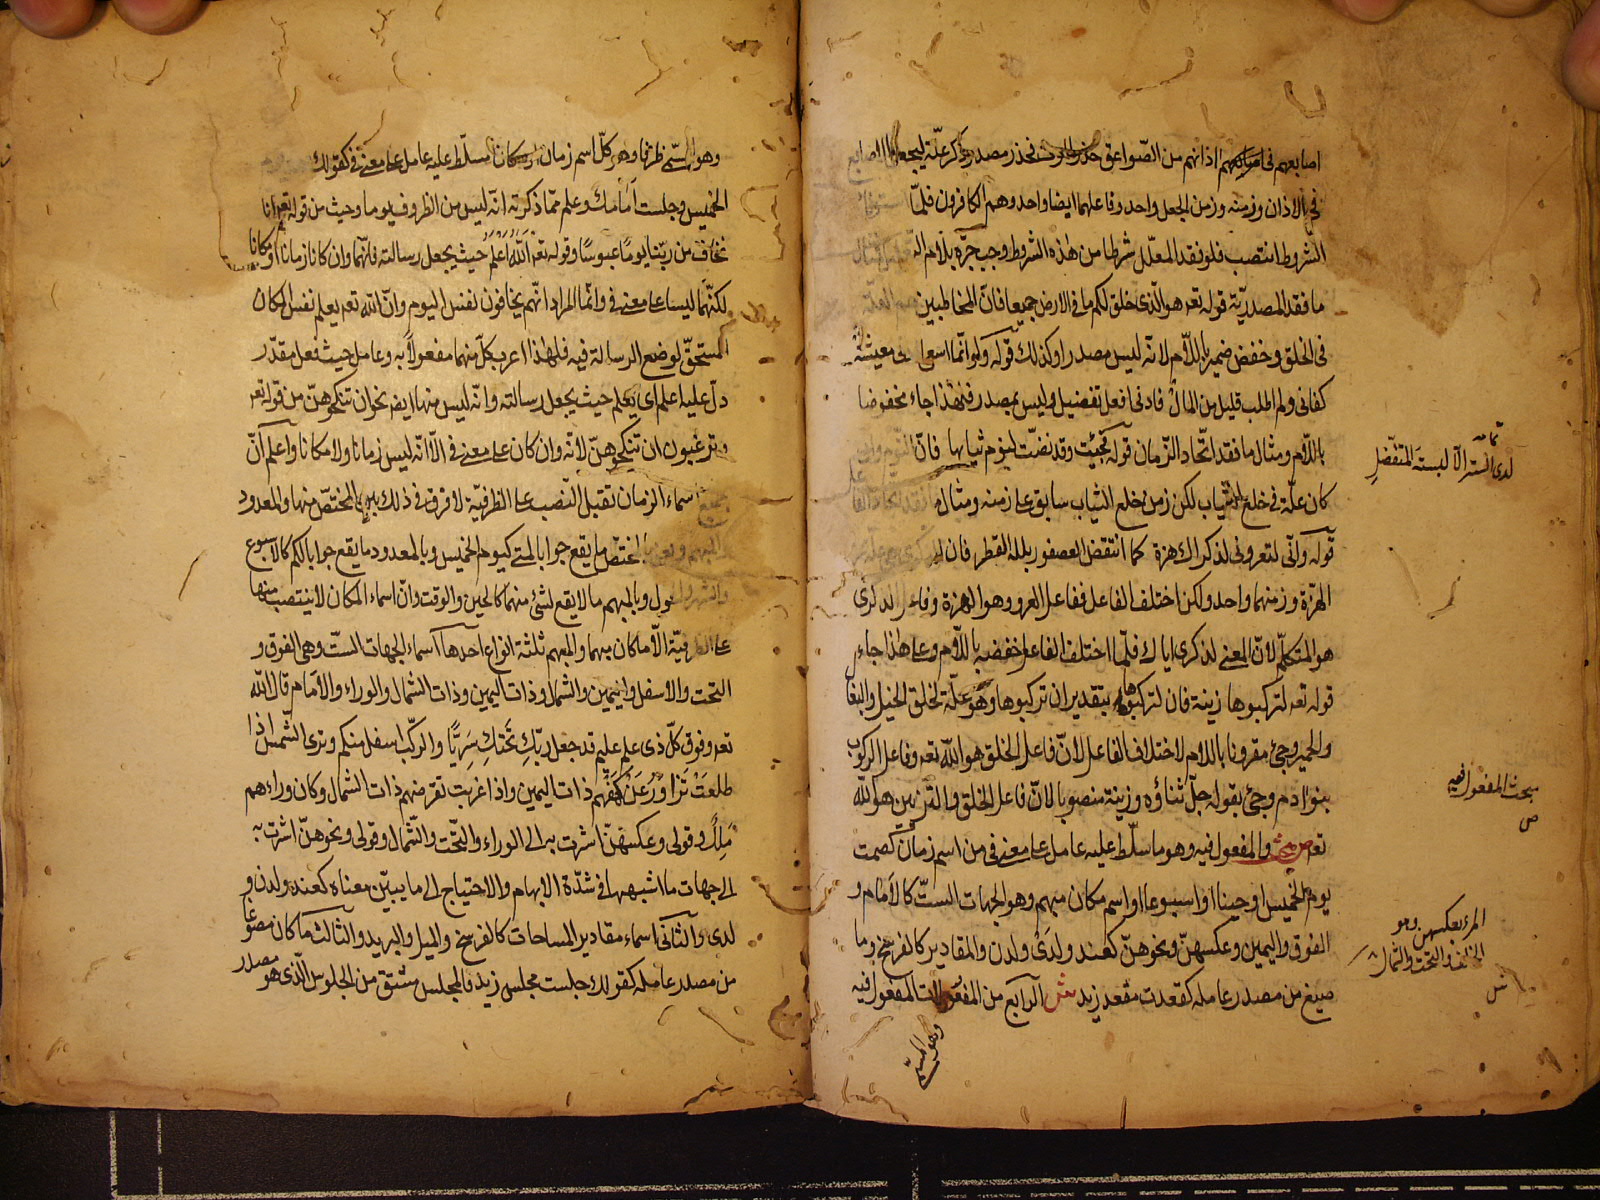 اصابعهم فى اذانهم من الصّواعق حذر الموت فحذر مصدر ذكر علّة ليجعل الاصابع
فى الاذان وزمنه وزمن الجعل واحد وفاعلهما ايضا واحد وهم الكافرون فلمّا
الشروط انتصب فلو فقد المعلّل شرطا من هذه الشروط وجب جرّه بلام
ما فقد المصدريّة قوله تعه هو الّذى خلق لكم ما فى الارض جميعا فانّ المخاطبين هم العلّة
فى الخلق وخفض ضميرهم باللّام لانّه ليس مصدرا وكذلك قوله ولو انّما اسعى لادنى معيشة
كفانى ولم اطلب قليل من المال فادنى افعل تفضيل وليس بمصدر فلهذا جاء مخفوضا
باللّام ومثال ما فقد اتّحاد الزّمان قوله فجئت وقد نضّت لنوم ثيابها فانّ النّوم وان
كان علّة فى خلع الثياب لكن زمن خلع الثياب سابق على زمنه ومثال ما فقد اتّحاد الفاعل
قوله وانّى لتعرونى لذكراك هزة كما انتقض العصفور بلله القطر فان الذكرى هى علّة
الهزّة وزمنهما واحد ولكن اختلف الفاعل ففاعل العرو وهو الهزة وفاعل الذكرى
هو المتكلّم لانّ المعنى لذكرى اياك فلمّا اختلف الفاعل خفض باللّام وعلى هذا جاء
قوله تعه لتركبوها وزينة فان لتركبوها بتقدير ان تركبوها وهو علّة لخلق الخيل والبغال
والحمير وجئ مقرونا باللام لاختلاف الفاعل لانّ فاعل الخلق هو اللّه تعه وفاعل الركوب
بنو ادم وجئ بقوله جلّ ثناؤه وزينة منصوبا لانّ فاعل الخلق والتّزيين هو اللّه
تعه ص والمفعول فيه وهو ما سلّط عليه عامل على معنى فى من اسم زمان كصمت
يوم الخميس او حينا او اسبوعا او اسم مكان مبهم وهو الجهات الستّ كالامام و
الفوق واليمين وعكسهنّ ونحوهنّ كعند ولدى ولدن والمقادير كالفرسخ وما
صيغ من مصدر عامله كقعدت مقعد زيد ش الرابع من المفعولات المفعول فيه
وهو المسمّى
بحث المفعول فيه
ص
وهو المسمّى ظرفا وهو كلّ اسم زمان او مكان سلّط عليه عامل على معنى فى كقولك
الخميس وجلست امامك وعلم ممّا ذكرته انّه ليس من الظروف يوما وحيث من قوله تعه انا
نخاف من ربّنا يوما عبوسا وقوله تعه اللّه اعلم حيث يجعل رسالته فانّهما وان كانا زمانا او مكانا
لكنّهما ليسا على معنى فى وانّما المراد انّهم يخافون نفس اليوم وانّ اللّه تعه يعلم نفس المكان
المستحقّ لوضع الرسالة فيه فلهذا اعرب كلّ منهما مفعولا به وعامل حيث فعل مقدّر
دلّ عليه اعلم اى يعلم حيث يجعل رسالته وانّه ليس منهما ايضا نحو ان تنكحوهنّ من قوله تعه
وترغبون ان تنكحوهنّ لانّه وان كان على معنى فى الّا انّه ليس زمانا ولا مكانا واعلم انّ
جميع اسماء الزمان تقبل النّصب على الظرفيّة لا فرق فى ذلك بين المختصّ منها والمعدود
والمبهم ونعنى بالمختصّ ما يقع جوابا لمتى كيوم الخميس وبالمعدود ما يقع جوابا لكم كالاسبوع
والشهر والحول وبالمبهم ما لا يقع لشئ منهما كالحين والوقت وانّ اسماء المكان لا ينتصب منها
على الظرفيّة الّا ما كان مبهما والمبهم ثلثة انواع احدها اسماء الجهات الستّ وهى الفوق و
التحت والاسفل واليمين والشمال وذات اليمين وذات الشمال والوراء والامام قال اللّه
تعه وفوق كلّ ذى علم عليم قد جعل ربّك تحتك سريّا والركب اسفل منكم وترى الشّمس اذا
طلعت تزاور عن كهفهم ذات اليمين واذا غربت تقرضهم ذات الشمال وكان وراءهم
ملك وقولى وعكسهنّ اشرت به الى الوراء والتّحت والشّمال وقولى ونحوهنّ اشرت به
الى جهات ما اشبهها فى شدّة الابهام والاحتياج الى ما يبيّن معناه كعند ولدن و
لدى والثانى اسماء مقادير المساحات كالفرسخ والميل والبريد والثالث ما كان مصوغا
من مصدر عامله كقولك جلست مجلس زيد فالمجلس مشتق من الجلوس الّذى هو مصدر